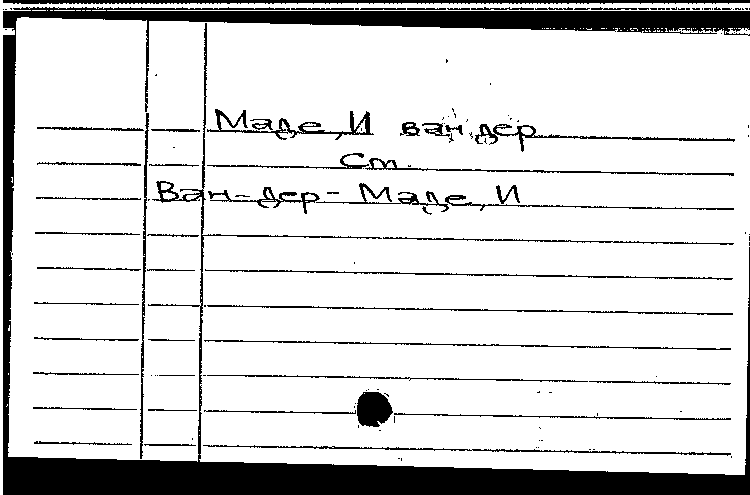 Маде, И ван дер
Cm.
Ван-дер-Маде, И